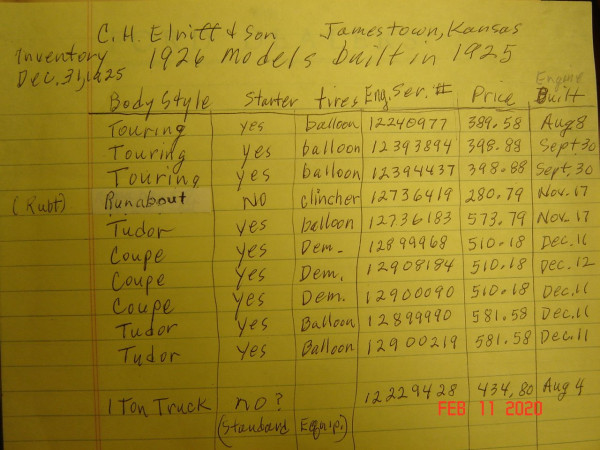 C. H. Elniff & Son Jamestown, Kansas
Inventory 1926 Models built in 1925
Dec. 31, 1925
Body Style Starter tires Eng. Ser. # Price Engine Built
Touring yes balloon 12240977 389.58 Aug 8
Touring yes balloon 12393894 398.88 Sept 30
Touring yes balloon 12394437 398.88 Sept. 30
(Rubt) Runabout NO clincher 12736419 280.79 Nov. 17
Tudor yes balloon 12736183 573.79 Nov. 17
Coupe yes Dem. 12899968 510.18 Dec. 11
Coupe yes Dem. 12908184 510.18 Dec. 12
Coupe yes Dem. 12900090 510.18 Dec. 11
Tudor yes Balloon 12899990 581.58 Dec. 11
Tudor yes Balloon 12900219 581.58 Dec. 11
1 Ton Truck NO? 12229428 434.80 Aug 4
(Standard Equip.)
FEB 11 2020